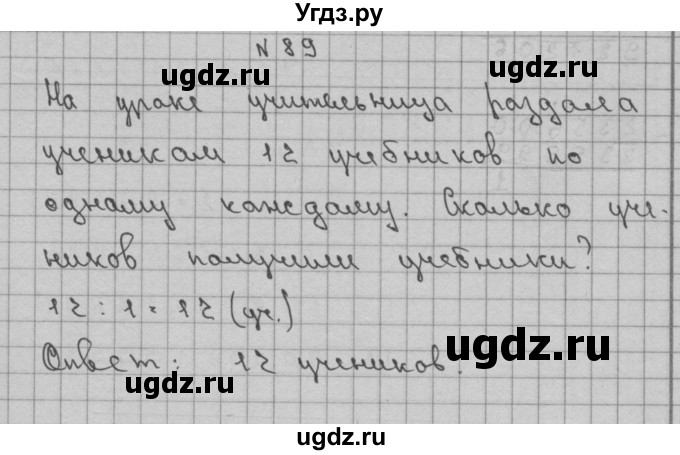 Угдз.ру
N 89
ugdz.ru ugdz.ru
На уроке учительница раздала
ученикам 12 учебников по
ugdz.ru ugdz.ru
одному каждому. Сколько уче-
ников получили учебники?
12 : 1 = 12 (уч.)
ugdz.ru ugdz.ru
Ответ: 12 учеников.
ugdz.ru ugdz.ru
ugdz.ru